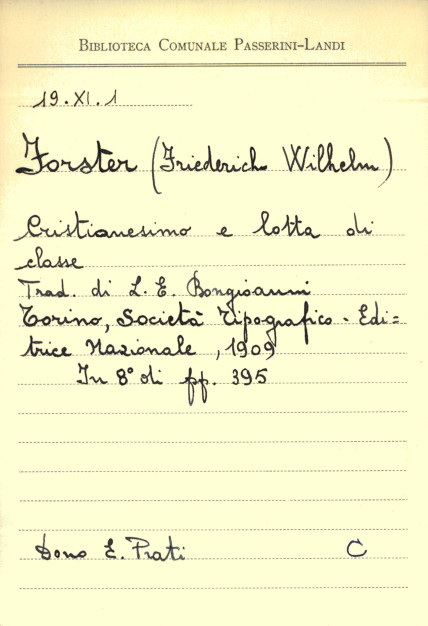 BIBLIOTECA COMUNALE PASSERINI-LANDI
19. XI. 1
Forster (Friederich Wilhelm)
Cristianesimo e lotta di
classe
Trad. di L. E. Bongioanni
Torino, Società Tipografico - Edi=
trice Nazionale, 1909
In 8° di pp. 395
Dono E. Prati C